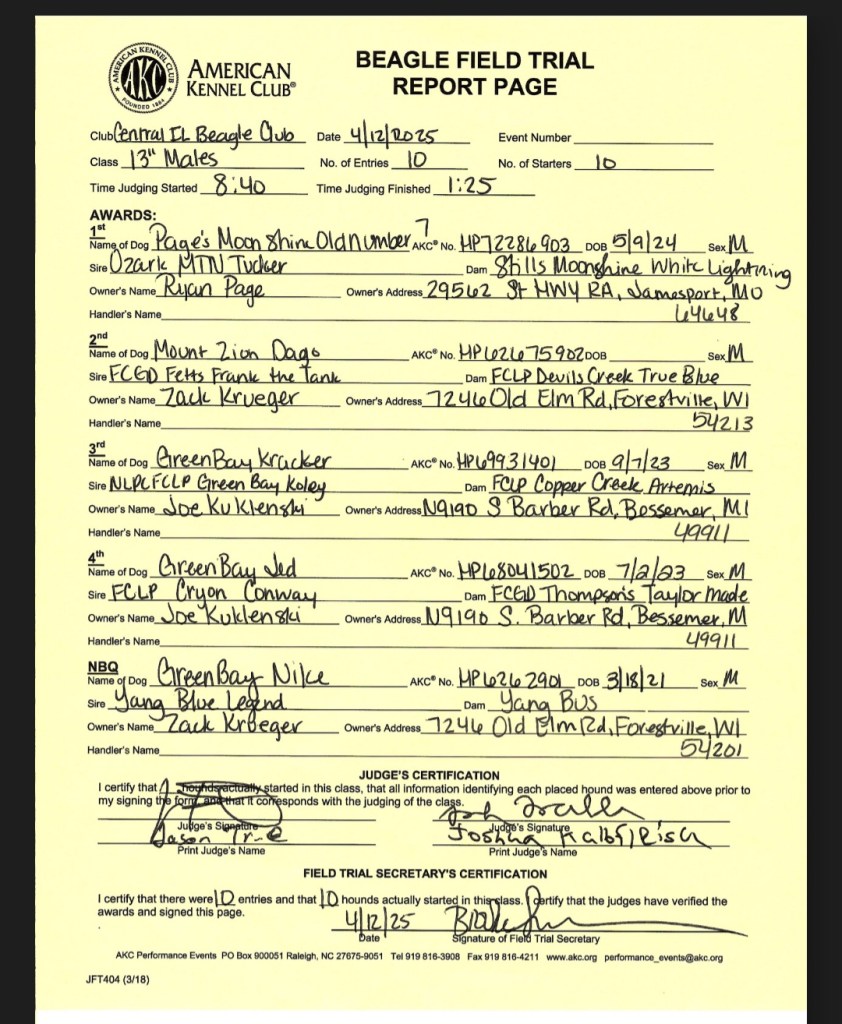 AMERICAN KENNEL CLUB
AKC
FOUNDED 1884
AMERICAN
KENNEL CLUB®
BEAGLE FIELD TRIAL
REPORT PAGE
Club Central IL Beagle Club Date 4/12/2025 Event Number
Class 13" Males No. of Entries 10 No. of Starters 10
Time Judging Started 8:40 Time Judging Finished 1:25
AWARDS:
1st
Name of Dog Page's Moon Shine Old Number 7 AKC® No. HP72286903 DOB 5/9/24 Sex M
Sire Ozark MTN Tucker Dam Stills Moonshine White Lightning
Owner's Name Ryan Page Owner's Address 29562 St HWY RA, Jamesport, MO
Handler's Name 64648
2nd
Name of Dog Mount Zion Dago AKC® No. HP62675902 DOB Sex M
Sire FCGD Fetts Frank the Tank Dam FCLP Devils Creek True Blue
Owner's Name Zack Krueger Owner's Address 7246 Old Elm Rd, Forestville, WI
Handler's Name 54213
3rd
Name of Dog Green Bay Kracker AKC® No. HP69931401 DOB 9/7/23 Sex M
Sire NLPCFCLP Green Bay Koley Dam FCLP Copper Creek Artemis
Owner's Name Joe Kuklenski Owner's Address N9190 S Barber Rd, Bessemer, MI
Handler's Name 49911
4th
Name of Dog Green Bay Jed AKC® No. HP68041502 DOB 7/2/23 Sex M
Sire FCLP Cryon Conway Dam FCGD Thompson's Taylor Made
Owner's Name Joe Kuklenski Owner's Address N9190 S. Barber Rd, Bessemer, M
Handler's Name 49911
NBQ
Name of Dog Green Bay Nike AKC® No. HP6262901 DOB 3/18/21 Sex M
Sire Yang Blue Legend Dam Yang Bus
Owner's Name Zack Krueger Owner's Address 7246 Old Elm Rd, Forestville, WI
Handler's Name 54201
JUDGE'S CERTIFICATION
I certify that hounds actually started in this class, that all information identifying each placed hound was entered above prior to
my signing the form, and that it corresponds with the judging of the class.
Judge's Signature Judge's Signature
Jason Joshua
Print Judge's Name Print Judge's Name
FIELD TRIAL SECRETARY'S CERTIFICATION
I certify that there were 10 entries and that 10 hounds actually started in this class. I certify that the judges have verified the
awards and signed this page.
4/12/25
Date Signature of Field Trial Secretary
AKC Performance Events PO Box 900051 Raleigh, NC 27675-9051 Tel 919 816-3908 Fax 919 816-4211 www.akc.org performance_events@akc.org
JFT404 (3/18)